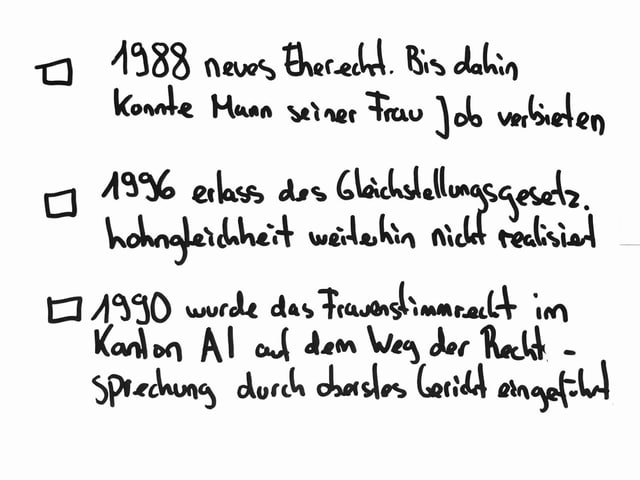 1988 neues Eherecht. Bis dahin
konnte Mann seiner Frau Job verbieten
1996 erlass des Gleichstellungsgesetz.
Lohngleichheit weiterhin nicht realisiert
1990 wurde das Frauenstimmrecht im
Kanton AI auf dem Weg der Recht-
sprechung durch oberstes Gericht eingeführt